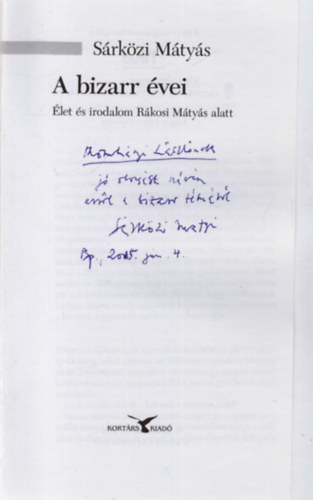 Sárközi Mátyás
A bizarr évei
Élet és irodalom Rákosi Mátyás alatt
Lászlónak
jó olvasást kíván
erről a bizarr témáról
Sárközi Matyi
Bp, 2005. jún. 4.
KORTÁRS KIADÓ